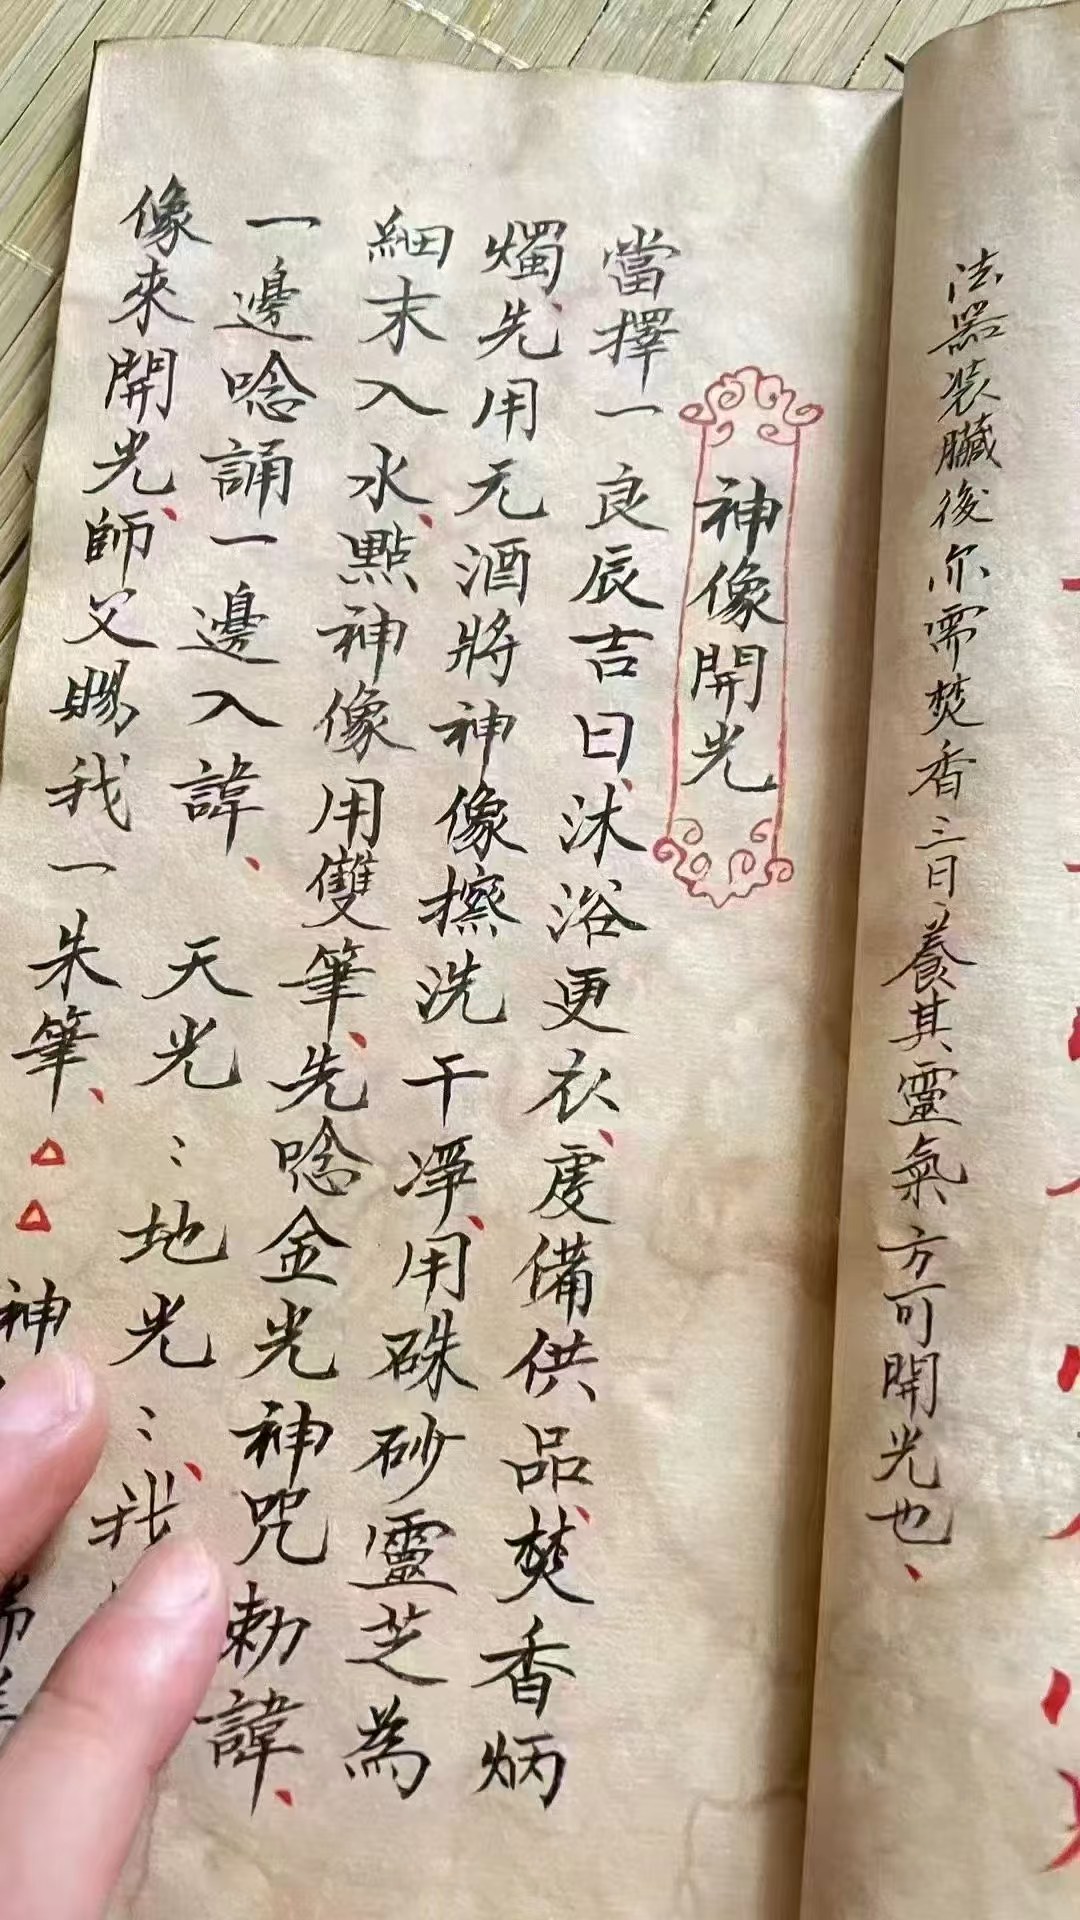 法器装臟後亦需焚香三日、養其靈氣方可開光也、
神像開光
當擇一良辰吉日、沐浴更衣、虔備供品、焚香炳
燭、先用元酒將神像擦洗干凈、用硃砂靈芝為
細末入水、點神像用雙筆、先唸金光神咒勅諱、
一邊唸誦一邊入諱、天光：地光：、我
像來開光、師父賜我一朱筆、△△神